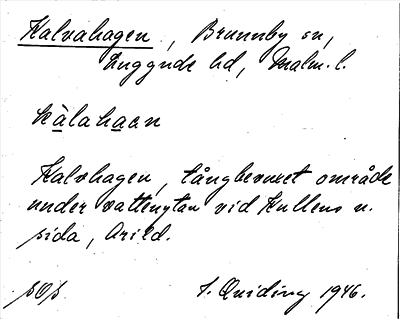 Kalvahagen, Brunnby sn,
Luggude hd, Malm. l.
kàlahaen
Kalvhagen, tångbevuxet område
under vattenytan vid Kullens n.
sida, Arild.
S. Quiding 1946.